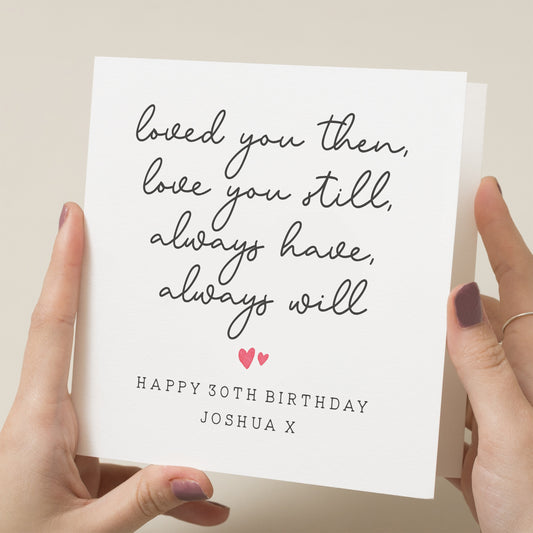 loved you then,
love you still,
always have,
always will
HAPPY 30TH BIRTHDAY
JOSHUA X